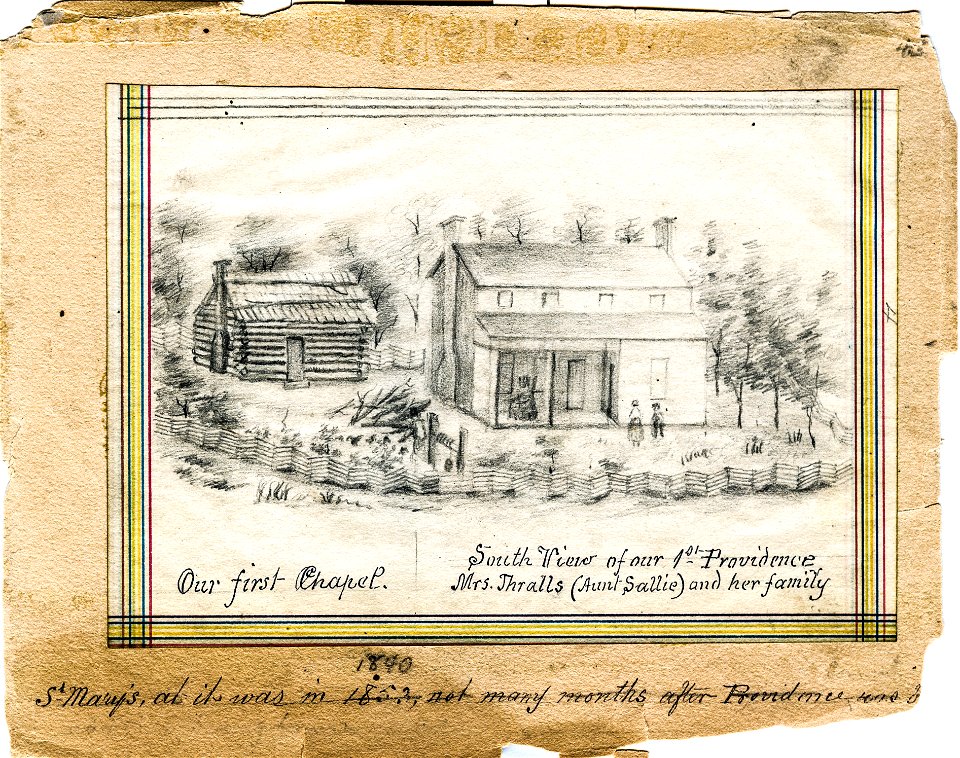 Our first Chapel.
South View of our 1st Providence
Mrs. Thralls (Aunt Sallie) and her family
1890
St Mary's, as it was in 1852, not many months after Providence was